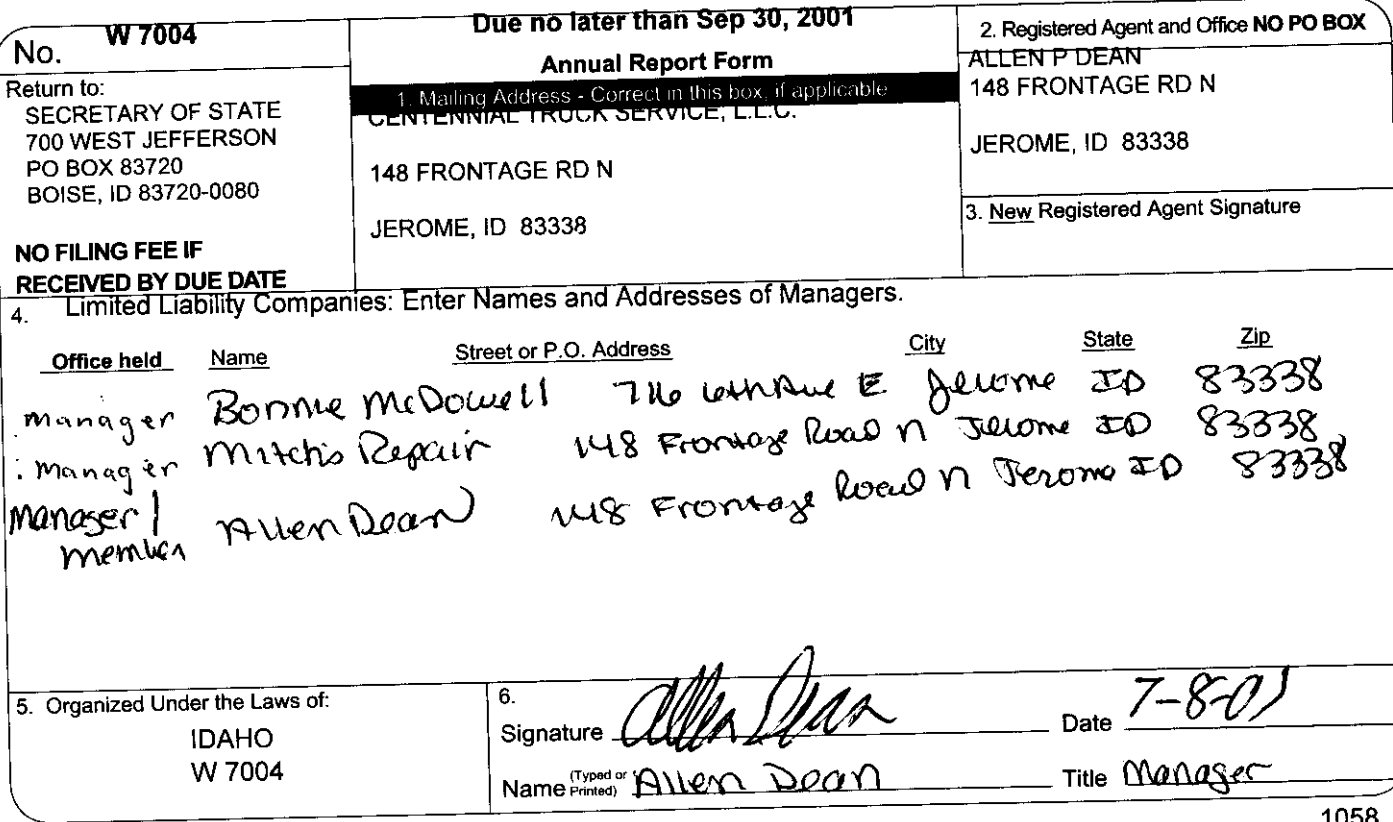 No. W 7004
Return to:
SECRETARY OF STATE
700 WEST JEFFERSON
PO BOX 83720
BOISE, ID 83720-0080
NO FILING FEE IF
RECEIVED BY DUE DATE
Due no later than Sep 30, 2001
Annual Report Form
1. Mailing Address - Correct in this box, if applicable
CENTENNIAL TRUCK SERVICE, L.L.C.
148 FRONTAGE RD N
JEROME, ID 83338
2. Registered Agent and Office NO PO BOX
ALLEN P DEAN
148 FRONTAGE RD N
JEROME, ID 83338
3. New Registered Agent Signature
4. Limited Liability Companies: Enter Names and Addresses of Managers.
Office held Name Street or P.O. Address City State Zip
Manager Bonnie McDowell 716 6th Ave E Jerome ID 83338
Manager Mitch's Repair 148 Frontage Road N Jerome ID 83338
Manager/ Allen Dean 148 Frontage Road N Jerome ID 83338
Member
5. Organized Under the Laws of:
IDAHO
W 7004
6.
Signature Allen Dean Date 7-8-01
Name (Typed or Printed) Allen Dean Title Manager
1058